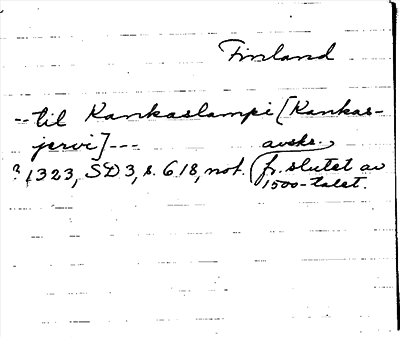 Finland
--til Kankaslampi [Kankas-
jervi]---
avskr.
? 1323, SD 3, s. 618, not. (fr. slutet av
1500-talet.